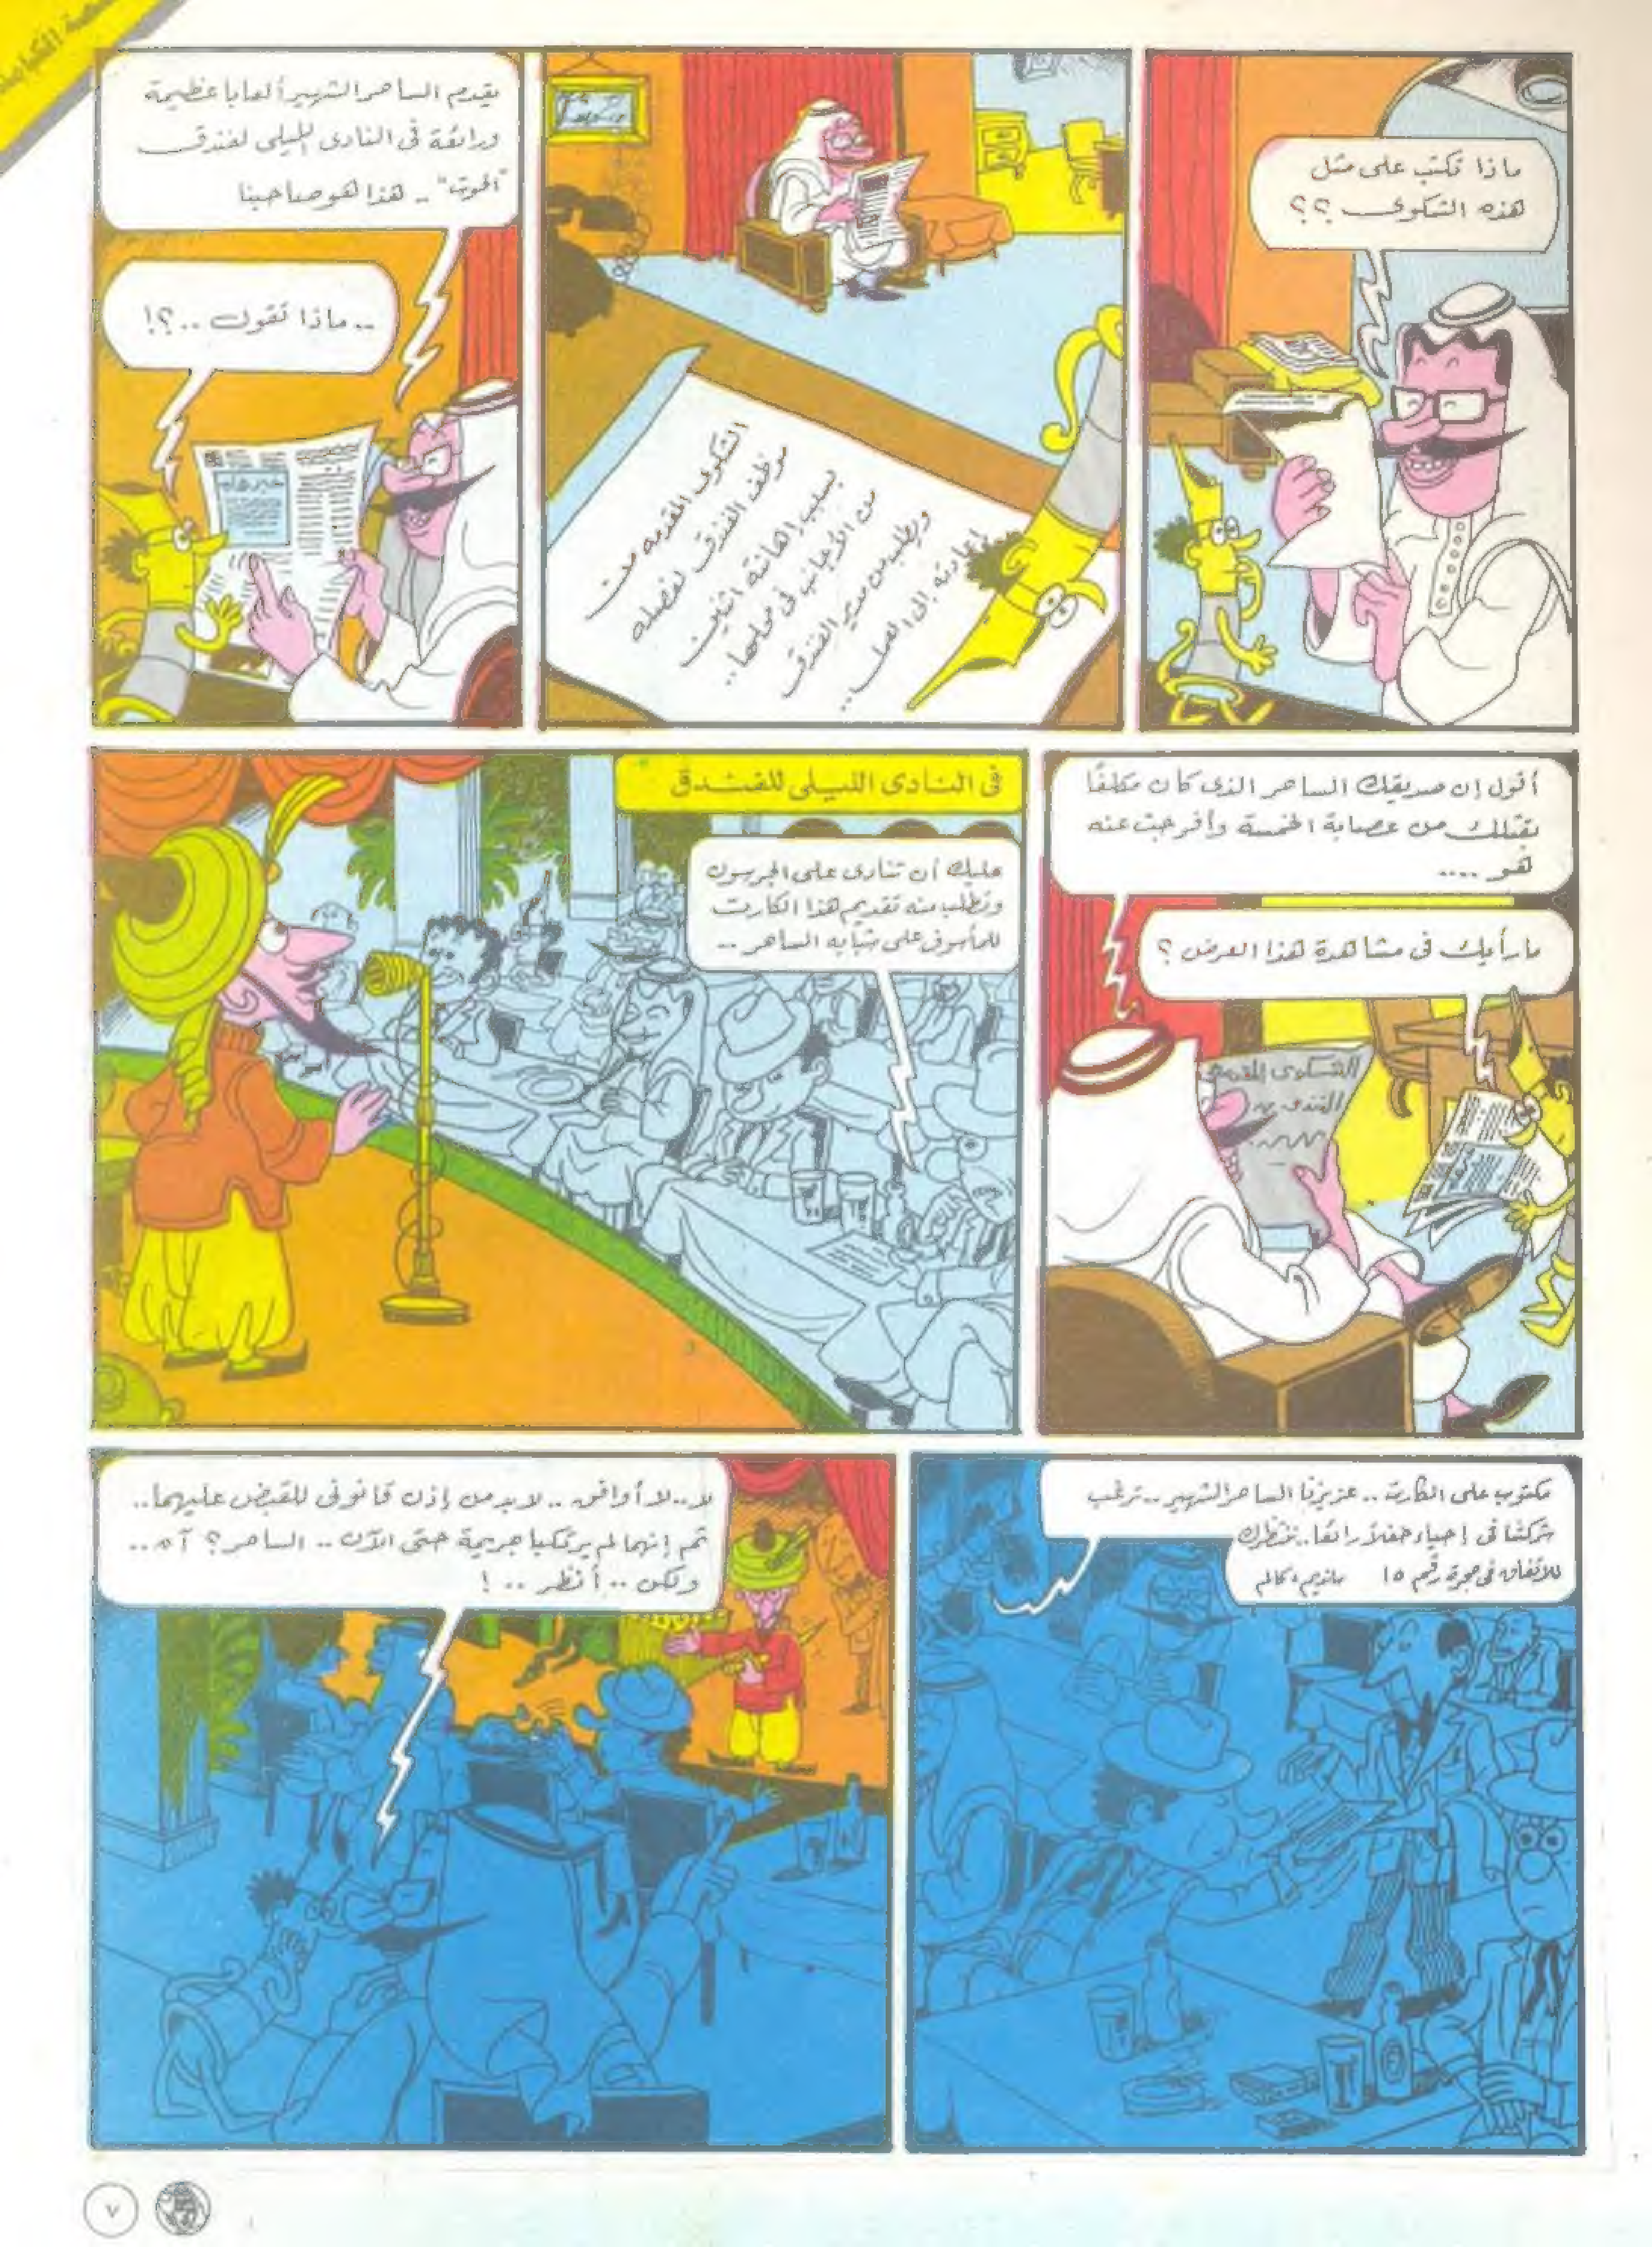 ماذا تكتب على مثل
هذه الشكوى ؟؟
الشكوى المقدمه من
موظف الفندق لفصله
بسبب إهانته اثنين
من الأجانب فى محلهما..
ويطلب من مدير الفندق
إعادته إلى العمل ...
يقدم الساحر الشهير ألعابا عظيمة
ورائعة فى النادى الليلى لفندق
"الحوت" .. هذا هو صاحبنا
.. ماذا تقول ..؟!
خبر هام
أقول إن صديقك الساحر الذى كان مكلفًا
بقتلك من عصابة الخمسة وأفرجت عنه
هو ....
ما رأيك فى مشاهدة هذا العرض ؟
الشكوى المقدمه
الفندق
فى النادى الليلى للفندق
عليك أن تنادى على الجرسون
وتطلب منه تقديم هذا الكارت
للمأسوف على شبابه الساحر ..
مكتوب على الكارت .. عزيزنا الساحر الشهير .. ترغب
شركتنا فى إحياء حفلاً رائعًا.. ننتظرك
للاتفاق فى حجرة رقم ١٥
لا..لا أوافق .. لابد من إذن قانونى للقبض عليهما..
ثم إنهما لم يرتكبا جريمة حتى الآن .. الساحر؟ آه ..
ولكن .. أنظر .. !
٧